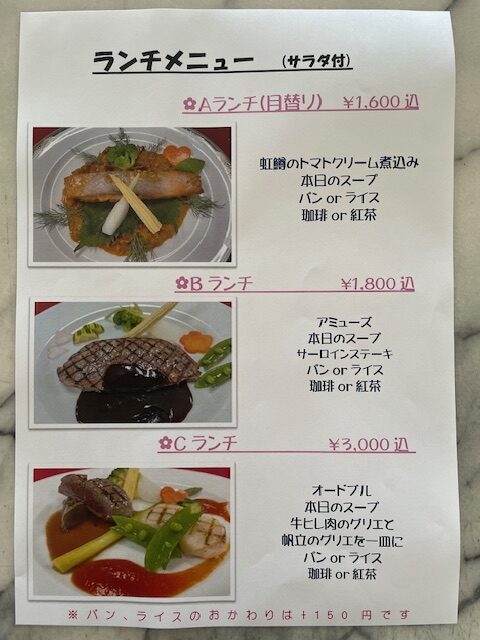 ランチメニュー (サラダ付)
✿Aランチ(日替り) ¥1,600込
虹鱒のトマトクリーム煮込み
本日のスープ
パン or ライス
珈琲 or 紅茶
✿B ランチ ¥1,800込
アミューズ
本日のスープ
サーロインステーキ
パン or ライス
珈琲 or 紅茶
✿C ランチ ¥3,000込
オードブル
本日のスープ
牛ヒレ肉のグリエと
帆立のグリエを一皿に
パン or ライス
珈琲 or 紅茶
※パン、ライスのおかわりは+150円です